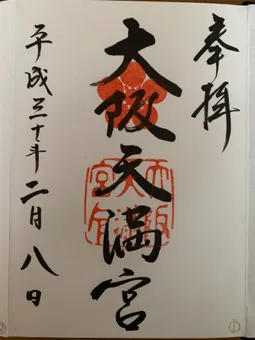 奉拝
大阪天満宮
平成三十年二月八日
①
②